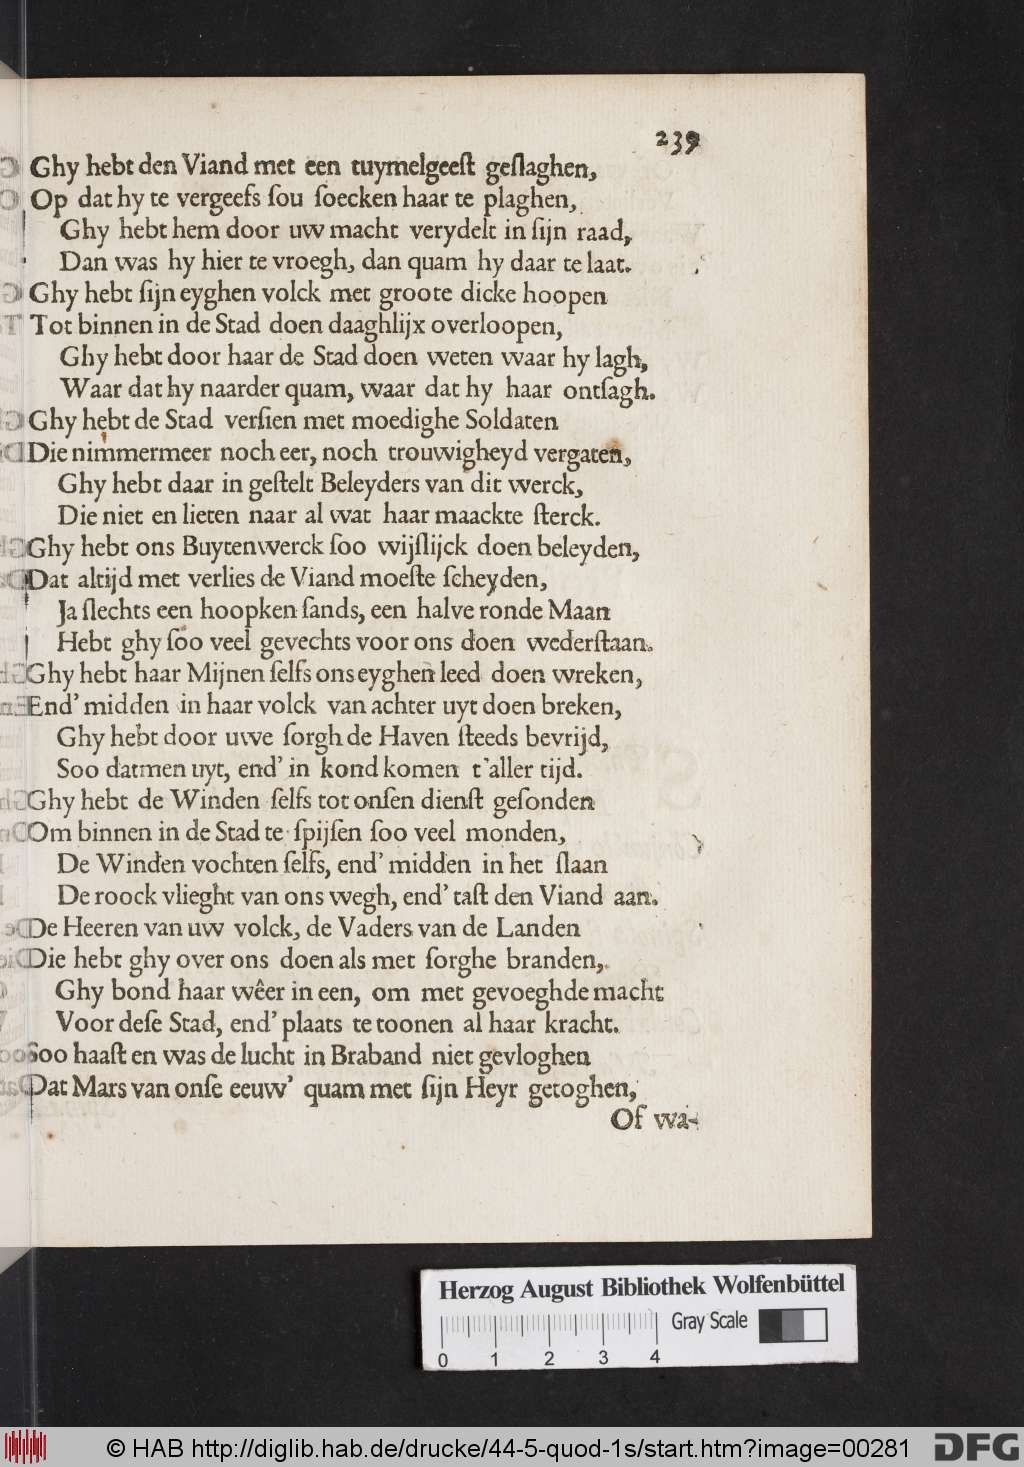 239
Ghy hebt den Viand met een tuymelgeeſt geſlaghen,
Op dat hy te vergeefs ſou ſoecken haar te plaghen,
Ghy hebt hem door uw macht verydelt in ſijn raad,
Dan was hy hier te vroegh, dan quam hy daar te laat.
Ghy hebt ſijn eyghen volck met groote dicke hoopen
Tot binnen in de Stad doen daaghlijx overloopen,
Ghy hebt door haar de Stad doen weten waar hy lagh,
Waar dat hy naarder quam, waar dat hy haar ontſagh.
Ghy hebt de Stad verſien met moedighe Soldaten
Die nimmermeer noch eer, noch trouwigheyd vergaten,
Ghy hebt daar in geſtelt Beleyders van dit werck,
Die niet en lieten naar al wat haar maackte ſterck.
Ghy hebt ons Buytenwerck ſoo wijſlijck doen beleyden,
Dat altijd met verlies de Viand moeſte ſcheyden,
Ja ſlechts een hoopken ſands, een halve ronde Maan
Hebt ghy ſoo veel gevechts voor ons doen wederſtaan.
Ghy hebt haar Mijnen ſelfs ons eyghen leed doen wreken,
End' midden in haar volck van achter uyt doen breken,
Ghy hebt door uwe ſorgh de Haven ſteeds bevrijd,
Soo datmen uyt, end' in kond komen t'aller tijd.
Ghy hebt de Winden ſelfs tot onſen dienſt geſonden
Om binnen in de Stad te ſpijſen ſoo veel monden,
De Winden vochten ſelfs, end' midden in het ſlaan
De roock vlieght van ons wegh, end' taſt den Viand aan.
De Heeren van uw volck, de Vaders van de Landen
Die hebt ghy over ons doen als met ſorghe branden,
Ghy bond haar wêer in een, om met gevoeghde macht
Voor deſe Stad, end' plaats te toonen al haar kracht.
Soo haaſt en was de lucht in Braband niet gevloghen
Dat Mars van onſe eeuw' quam met ſijn Heyr getoghen,
Of wa-
Herzog August Bibliothek Wolfenbüttel
Gray Scale
0 1 2 3 4
© HAB http://diglib.hab.de/drucke/44-5-quod-1s/start.htm?image=00281
DFG